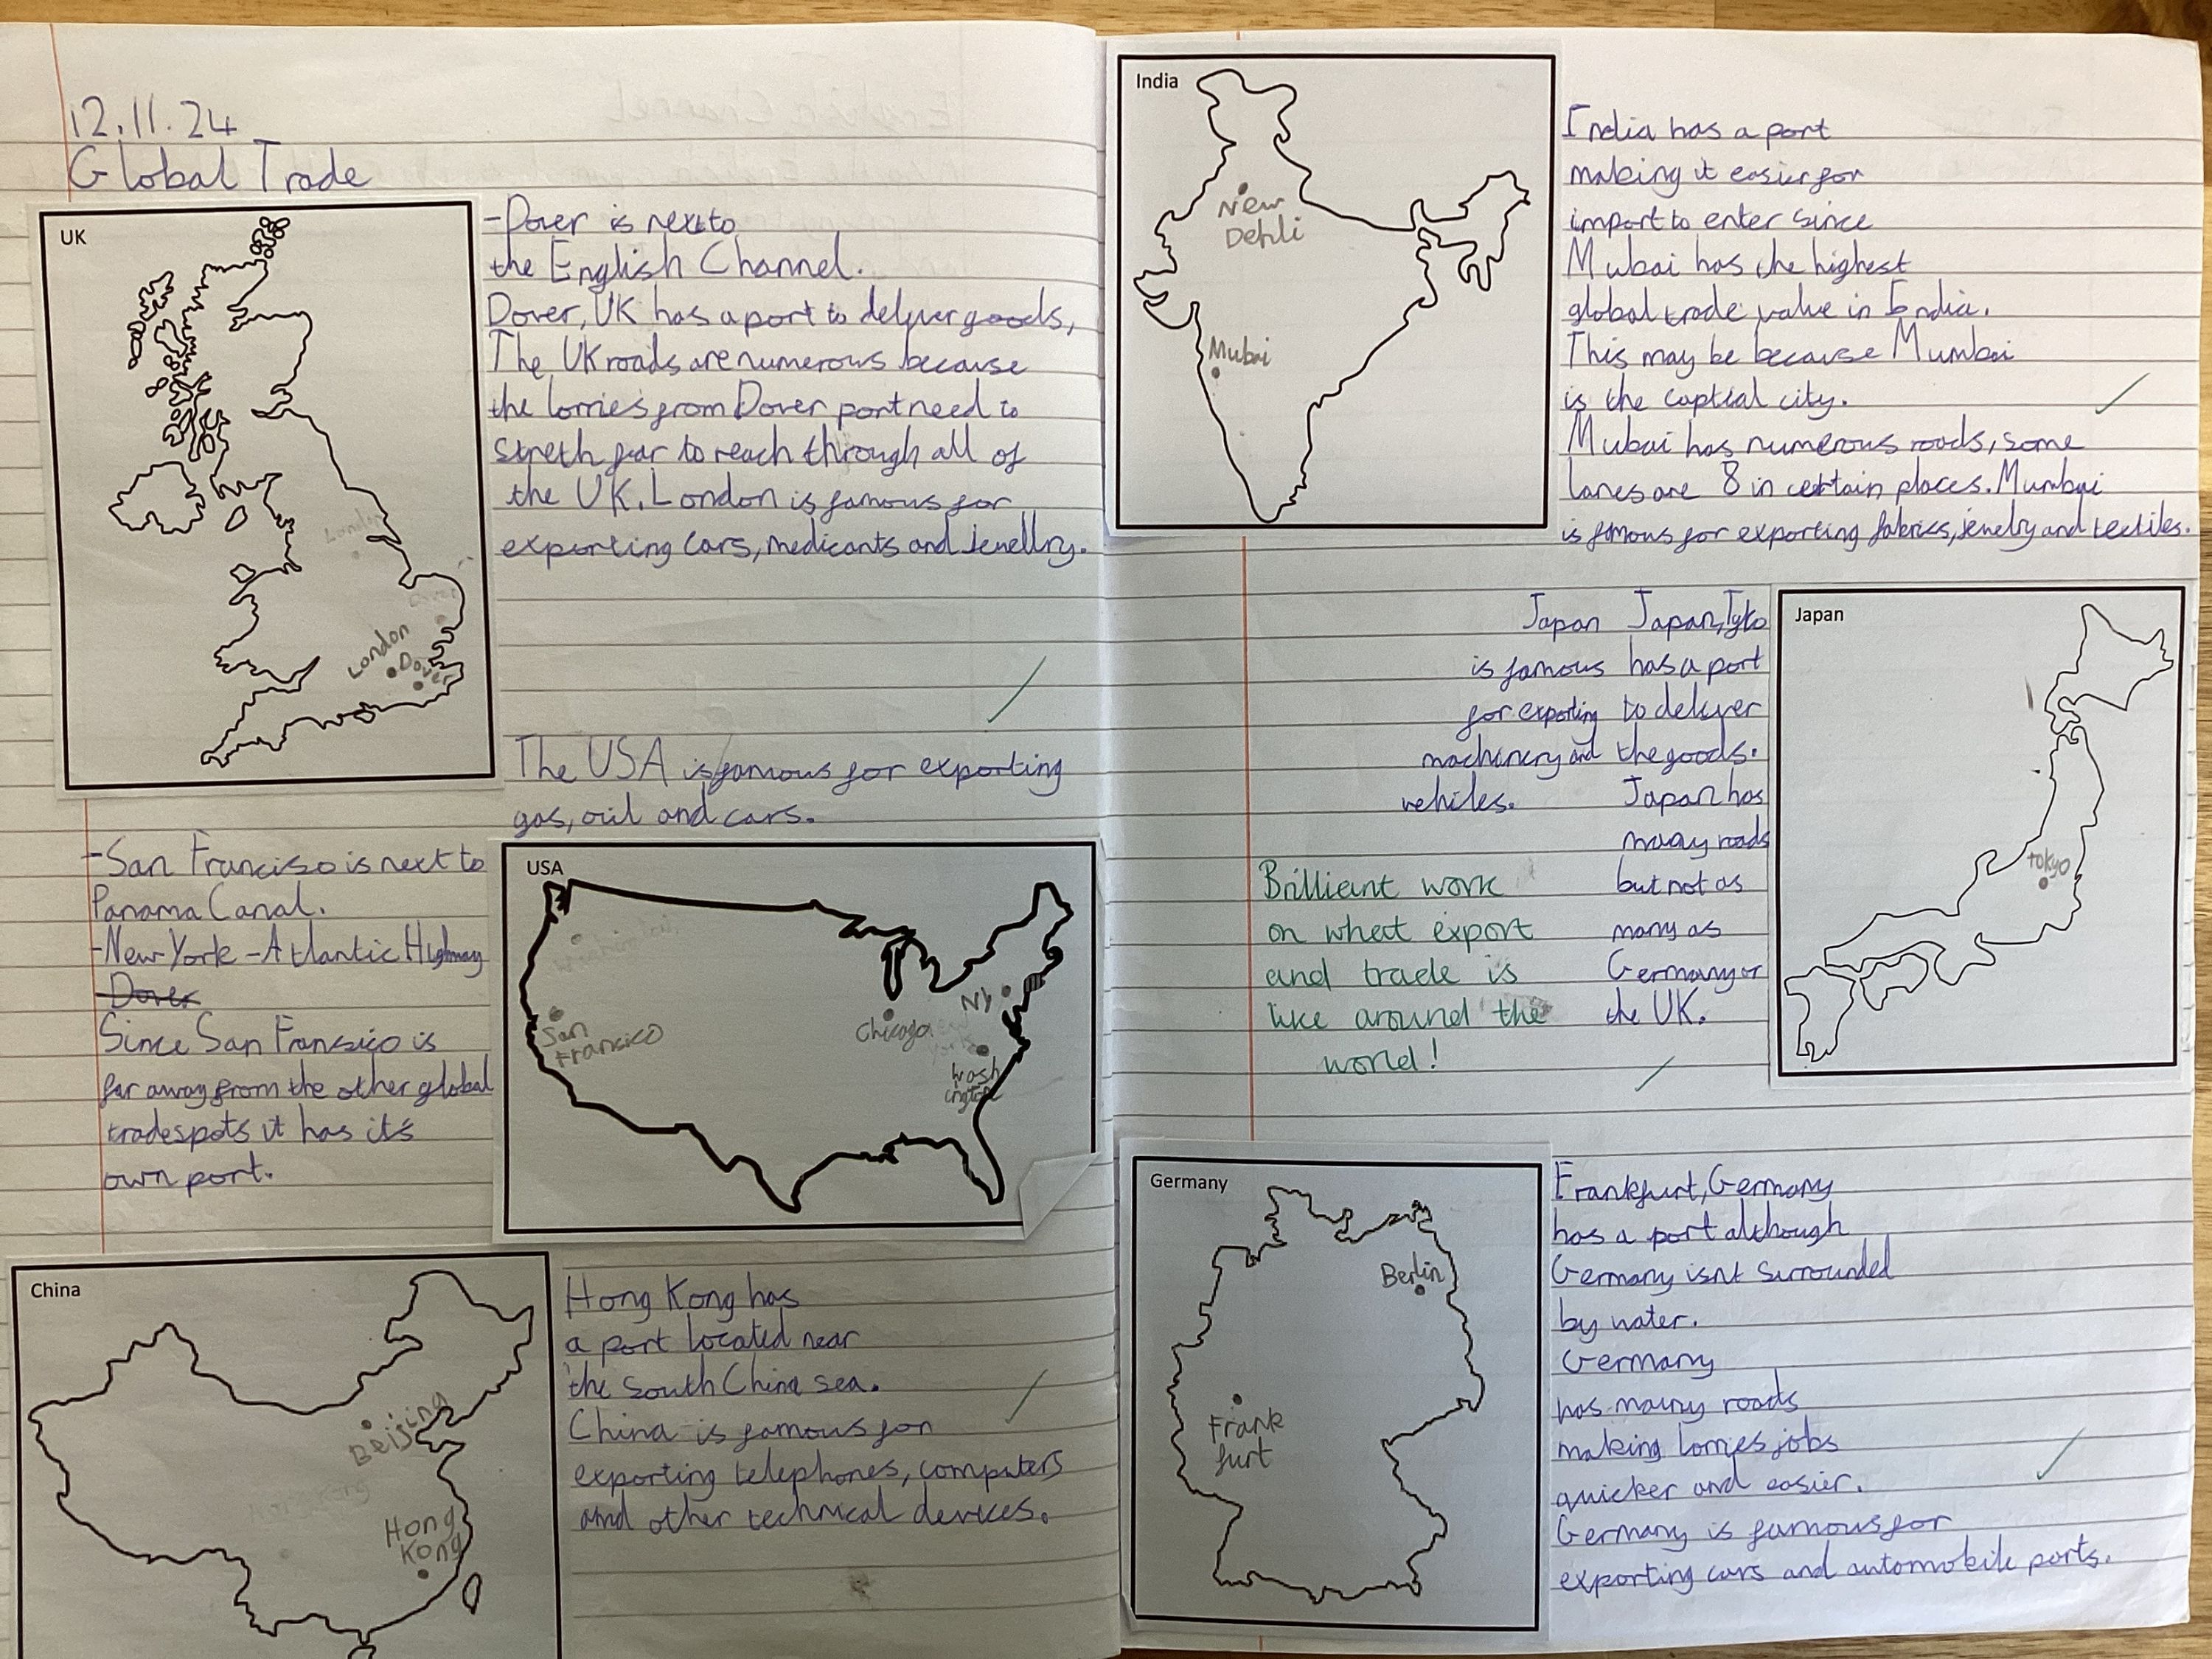 12.11.24
Global Trade
UK
London
Dover
-Dover is next to
the English Channel.
Dover, UK has a port to deliver goods,
The UK roads are numerous because
the lorries from Dover port need to
streth far to reach through all of
the UK. London is famous for
exporting cars, medicants and jewellry.
The USA is famous for exporting
gas, oil and cars.
-San Franciso is next to
Panama Canal.
-New York - Atlantic Highway
-Dover
Since San Fransico is
far away from the other global
trade spots it has it's
own port.
USA
San
Fransico
Chicago
NY
Wash
ington
China
Beijing
Hong
Kong
Hong Kong has
a port located near
the South China sea.
China is famous for
exporting telephones, computers
and other technical devices.
India
New
Dehli
Mubai
India has a port
making it easier for
import to enter since
Mubai has the highest
global trade value in India.
This may be because Mumbai
is the captial city.
Mubai has numerous roads, some
lanes are 8 in certain places. Mumbai
is famous for exporting fabrics, jewelry and textiles.
Japan
is famous
for exporting
machinery and
vehiles.
Japan, Tyko
has a port
to deliver
the goods.
Japan has
many roads
but not as
many as
Germany or
the UK.
Japan
Tokyo
Brilliant work
on what export
and trade is
like around the
world!
Germany
Berlin
Frank
furt
Frankfurt, Germany
has a port although
Germany isnt surrounded
by water.
Germany
has many roads
making lorries jobs
quicker and easier.
Germany is famous for
exporting cars and automobile parts.